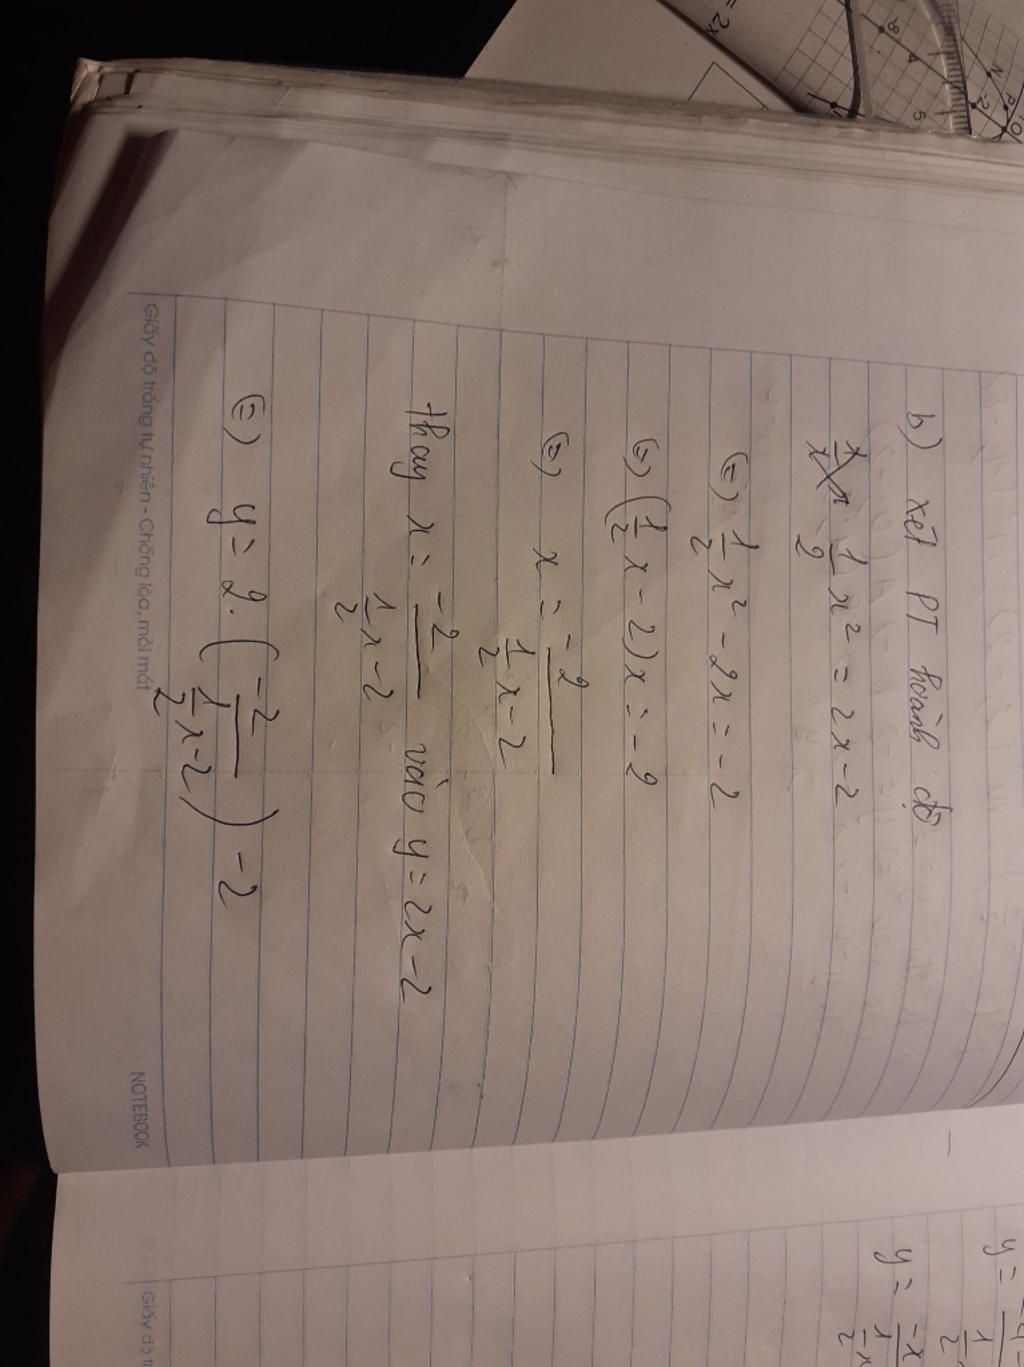 b) xét PT hoành độ
1/2 x² = 2x - 2
⇔ 1/2 x² - 2x = -2
⇔ (1/2 x - 2)x = -2
⇔ x = -2 / (1/2 x - 2)
thay x = -2 / (1/2 x - 2) vào y = 2x - 2
⇔ y = 2. (-2 / (1/2 x - 2)) - 2
Giấy độ trắng tự nhiên - Chống lóa, mỏi mắt
NOTEBOOK